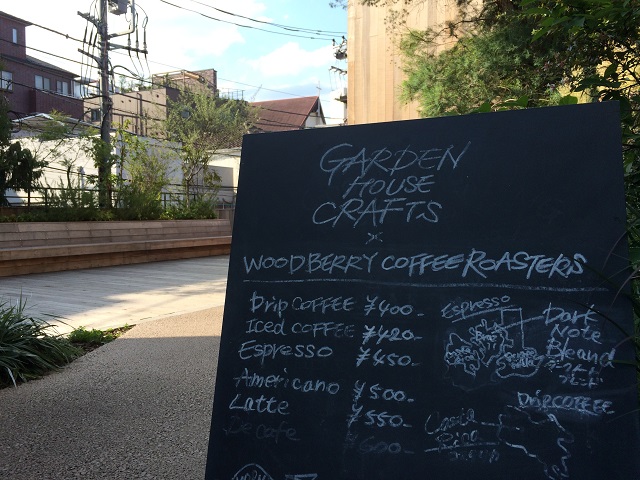 GARDEN
HOUSE
CRAFTS
×
WOODBERRY COFFEE ROASTERS
Drip COFFEE ¥400-
Iced COFFEE ¥420-
Espresso ¥450-
Americano ¥500-
Latte ¥550-
Decafe ¥600-
Espresso
Dark
Note
Bleand
ダークノート
ブレンド
Drip COFFEE
Costa
Rica